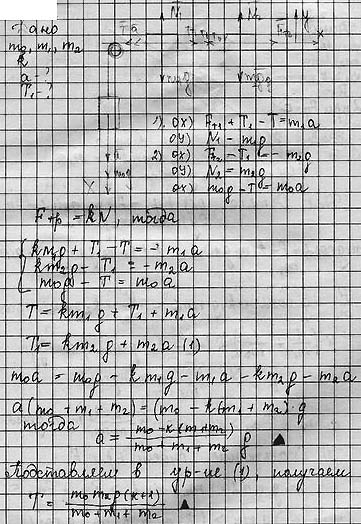 Дано
m₀, m₁, m₂
k
a - ?
T₁ - ?
N₁ N₂ y
a Fтр x
m₁g m₂g
T
m₀g
1). ox) Fтр + T₁ - T = m₁a
oy) N₁ - m₁g
2) ox) Fтр - T₁ = - m₂g
oy) N₂ = m₂g
ox) m₀g - T = m₀a
Fтр = kN, тогда
km₁g + T₁ - T = - m₁a
km₂g - T₁ = - m₂a
m₀g - T = m₀a
T = km₁g + T₁ + m₁a
T₁ = km₂g + m₂a (1)
m₀a = m₀g - km₁g - m₁a - km₂g - m₂a
a(m₀ + m₁ + m₂) = (m₀ - k(m₁ + m₂)) · g
тогда
a = (m₀ - k(m₁ + m₂)) / (m₀ + m₁ + m₂) g ▲
Подставляем в ур-ие (1), получаем
T = m₀m₂g(k+1) / (m₀ + m₁ + m₂) ▲